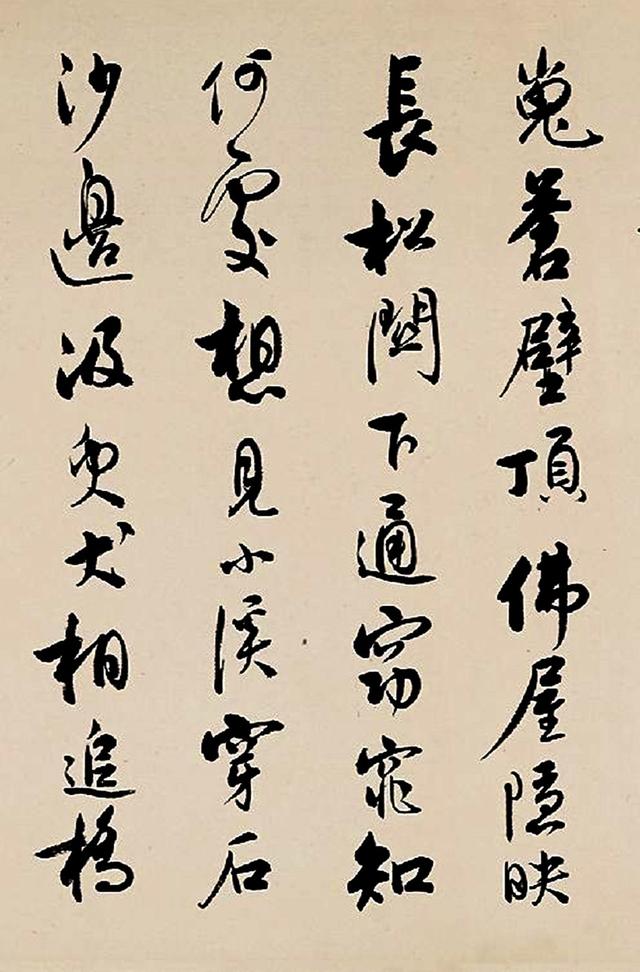 嵬蒼壁頂佛屋隱映
長松間下通窈窕知
何處想見小溪穿石
沙邊汲叟犬相追橋